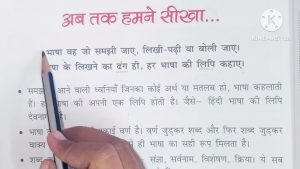 अब तक हमने सीखा...
भाषा वह जो समझी जाए, लिखी-पढ़ी या बोली जाए।
के लिखने का ढंग ही, हर भाषा की लिपि कहाए।
आने वाली ध्वनियाँ जिनका कोई अर्थ या मतलब हो, भाषा कहलाती
हर भाषा की अपनी एक लिपि होती है। जैसे- हिंदी भाषा की लिपि
देवनागरी
भाषा वर्ण है। वर्ण जुड़कर शब्द और फिर शब्द जुड़कर
वाक्य ही भाषा का सही रूप मिलता है।
शब्द संज्ञा, सर्वनाम, विशेषण, क्रिया। ये सब
KINEMASTER